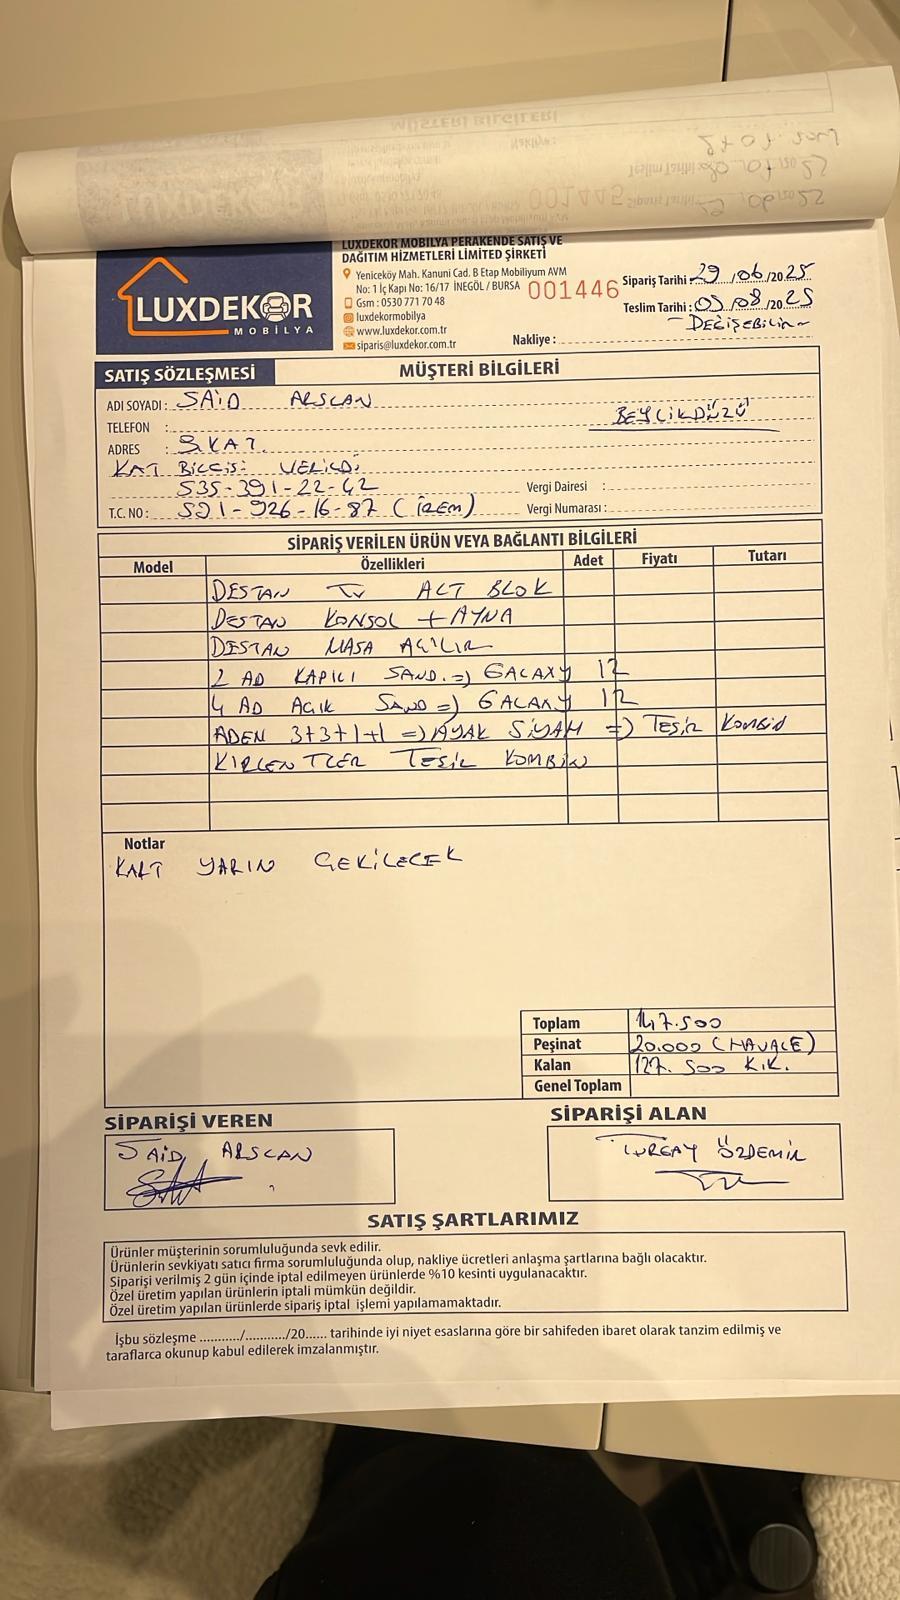 LUXDEKOR
MOBİLYA
LUXDEKOR MOBİLYA PERAKENDE SATIŞ VE
DAĞITIM HİZMETLERİ LİMİTED ŞİRKETİ
Yeniceköy Mah. Kanuni Cad. B Etap Mobiliyum AVM
No: 1 İç Kapı No: 16/17 İNEGÖL / BURSA
001446
Gsm : 0530 771 70 48
luxdekormobilya
www.luxdekor.com.tr
siparis@luxdekor.com.tr
Sipariş Tarihi : 29/06/2025
Teslim Tarihi : 05/08/2025
DEĞİŞEBİLİR
Nakliye :
SATIŞ SÖZLEŞMESİ
MÜŞTERİ BİLGİLERİ
ADI SOYADI : SAİD ARSLAN
TELEFON :
BEYLİKDÜZÜ
ADRES : 3.KAT.
KAT BİLGİSİ VERİLDİ
535-391-22-42
Vergi Dairesi :
T.C. NO : 501-926-16-87 (İREM)
Vergi Numarası :
SİPARİŞ VERİLEN ÜRÜN VEYA BAĞLANTI BİLGİLERİ
Model Özellikleri Adet Fiyatı Tutarı
DESTAN TV ALT BLOK
DESTAN KONSOL + AYNA
DESTAN MASA AÇILIR
2 AD KAPICI SAND. => GALAXY 12
4 AD AÇIK SAND => GALAXY 12
ADEN 3+3+1+1 => AYAK SİYAH => TEŞİR KOMBİN
KIRLENTLER TEŞİR KOMBİN
Notlar
KART YARIN ÇEKİLECEK
Toplam 147.500
Peşinat 20.000 (HAVALE)
Kalan 127.500 K.K.
Genel Toplam
SİPARİŞİ VEREN
SİPARİŞİ ALAN
SAİD ARSLAN
TURGAY ÖZDEMİR
SATIŞ ŞARTLARIMIZ
Ürünler müşterinin sorumluluğunda sevk edilir.
Ürünlerin sevkiyatı satıcı firma sorumluluğunda olup, nakliye ücretleri anlaşma şartlarına bağlı olacaktır.
Siparişi verilmiş 2 gün içinde iptal edilmeyen ürünlerde %10 kesinti uygulanacaktır.
Özel üretim yapılan ürünlerin iptali mümkün değildir.
Özel üretim yapılan ürünlerde sipariş iptal işlemi yapılamamaktadır.
İşbu sözleşme .........../.........../20...... tarihinde iyi niyet esaslarına göre bir sahifeden ibaret olarak tanzim edilmiş ve
taraflarca okunup kabul edilerek imzalanmıştır.